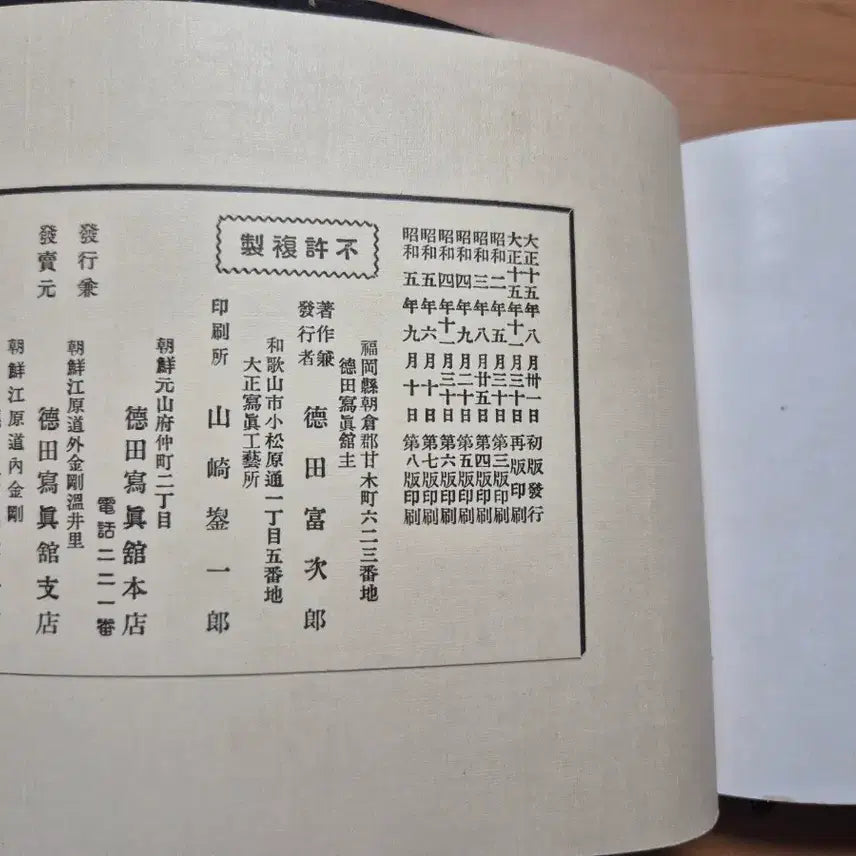 大正十五年八月卅一日初版發行
大正十五年十一月三十日再版印刷
昭和二年五月三十日第三版印刷
昭和三年八月廿五日第四版印刷
昭和四年九月二十日第五版印刷
昭和四年十一月三十日第六版印刷
昭和五年六月十日第七版印刷
昭和五年九月十日第八版印刷
不許複製
福岡縣朝倉郡甘木町六二三番地
德田寫眞舘主
著作兼
發行者
德田富次郎
和歌山市小松原通一丁目五番地
大正寫眞工藝所
印刷所
山崎一郎
朝鮮元山府仲町二丁目
德田寫眞舘本店
電話二二一番
發行兼
發賣元
朝鮮江原道外金剛溫井里
德田寫眞舘支店
朝鮮江原道內金剛